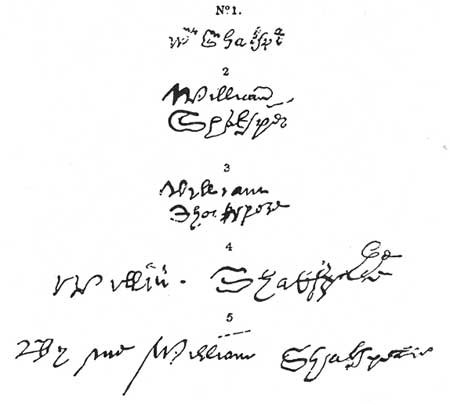 No. 1.
Wm Shakspē
2
William
Shakspēr
3
William
Shakspere
4
William
Shakspere
5
By me William Shakspeare